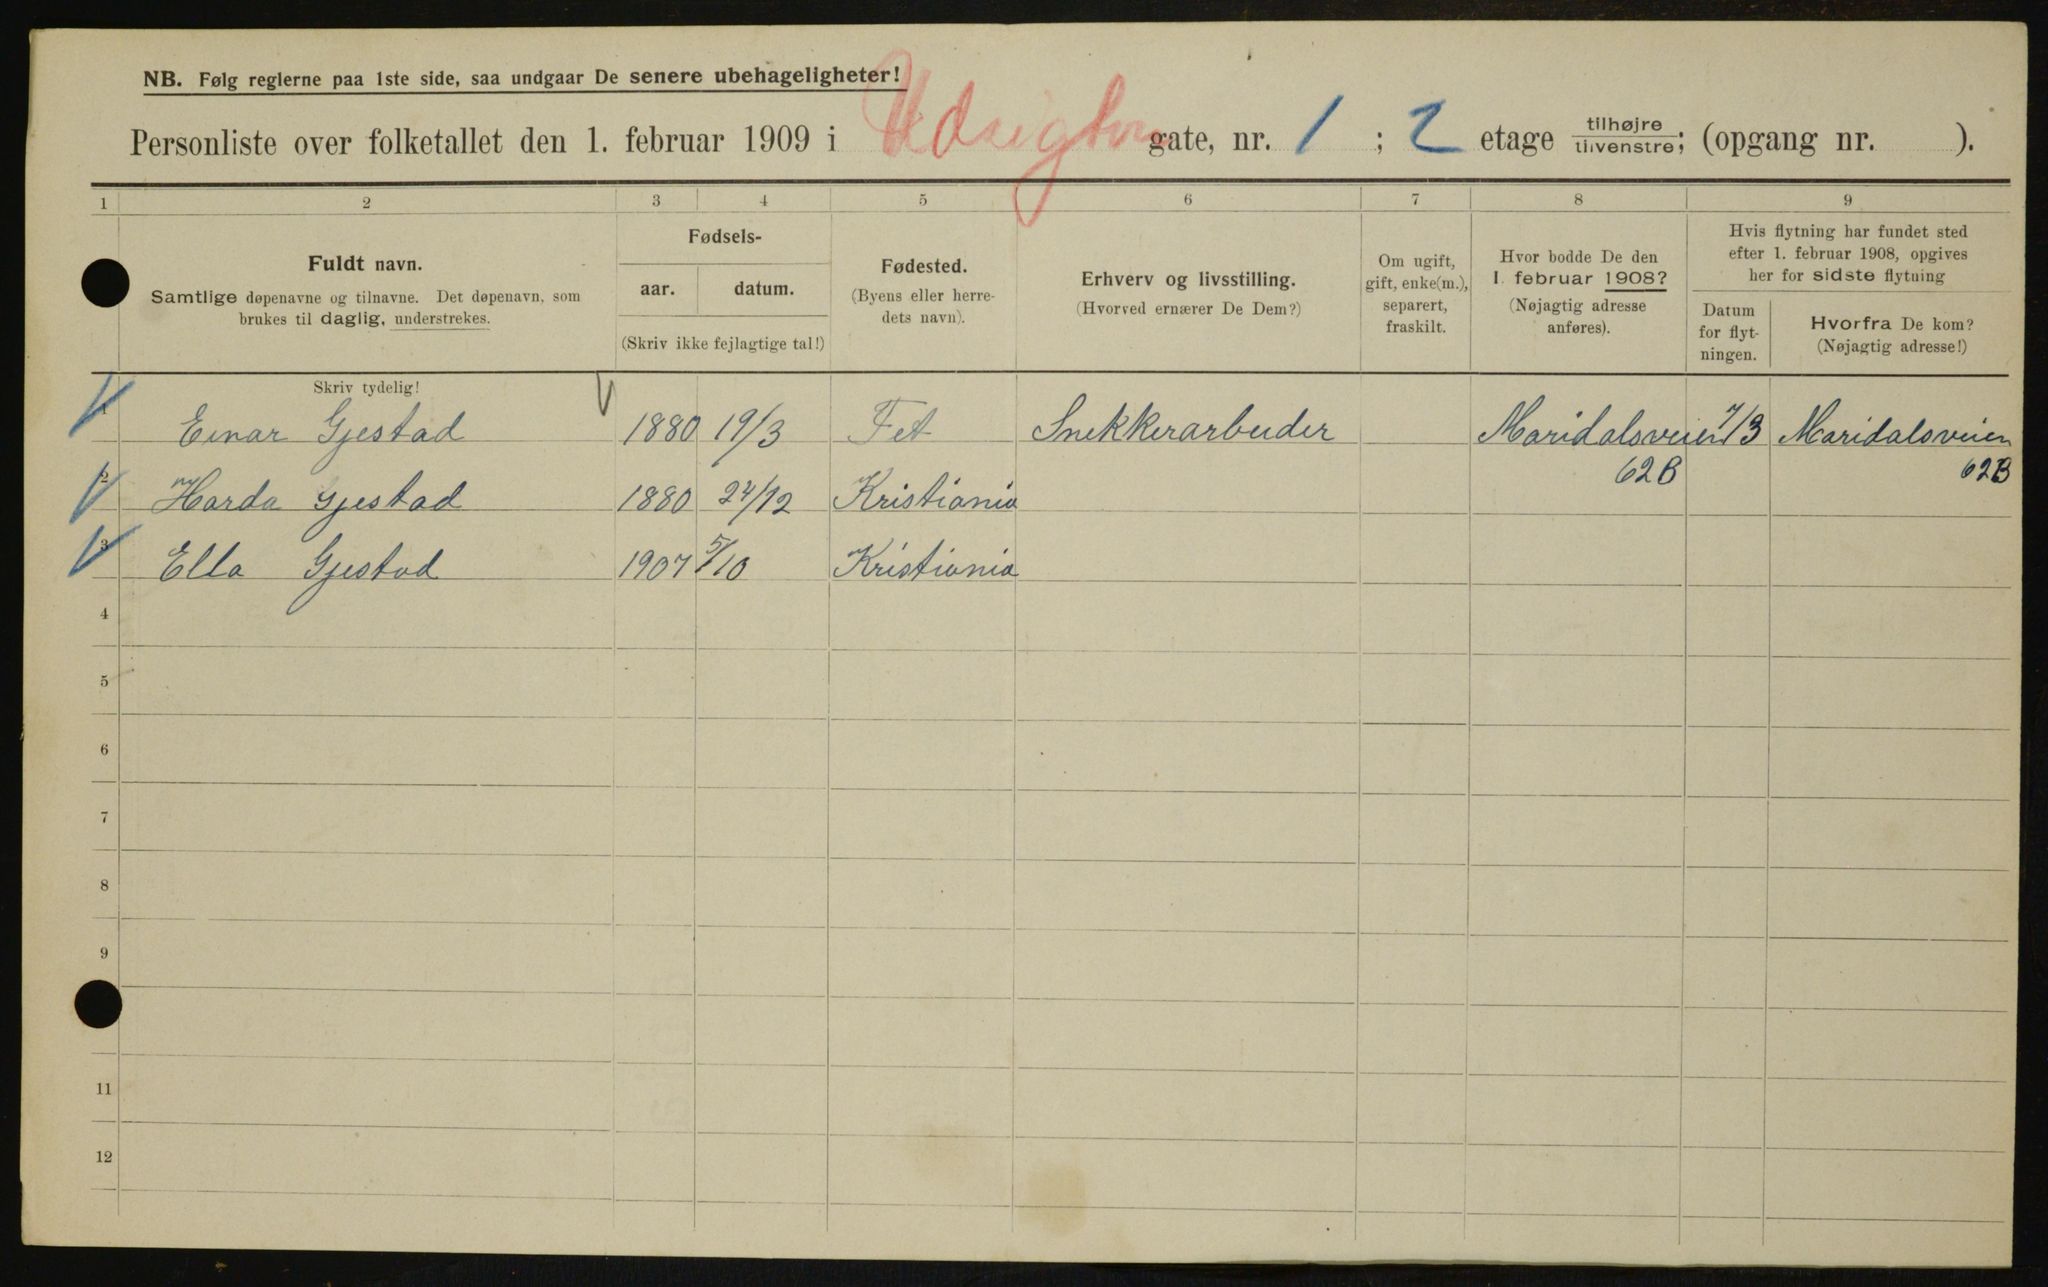 NB. Følg reglerne paa 1ste side, saa undgaar De senere ubehageligheter!
Personliste over folketallet den 1. februar 1909 i gate, nr. 1 ; 2 etage tilhøjre tilvenstre; (opgang nr. ).
1 2 3 4 5 6 7 8 9
Fuldt navn.
Samtlige døpenavne og tilnavne. Det døpenavn, som
brukes til daglig, understrekes.
Fødsels-
aar. datum.
(Skriv ikke fejlagtige tal!)
Fødested.
(Byens eller herre-
dets navn).
Erhverv og livsstilling.
(Hvorved ernærer De Dem?)
Om ugift,
gift, enke(m.),
separert,
fraskilt.
Hvor bodde De den
1. februar 1908?
(Nøjagtig adresse
anføres).
Hvis flytning har fundet sted
efter 1. februar 1908, opgives
her for sidste flytning
Datum
for flyt-
ningen.
Hvorfra De kom?
(Nøjagtig adresse!)
Skriv tydelig!
1 Einar Gjestad 1880 19/3 Fet Snekkerarbeider Maridalsveien 7/3 Maridalsveien
62B 62B
2 Harda Gjestad 1880 24/12 Kristiania
3 Ella Gjestad 1907 5/10 Kristiania
4
5
6
7
8
9
11
12